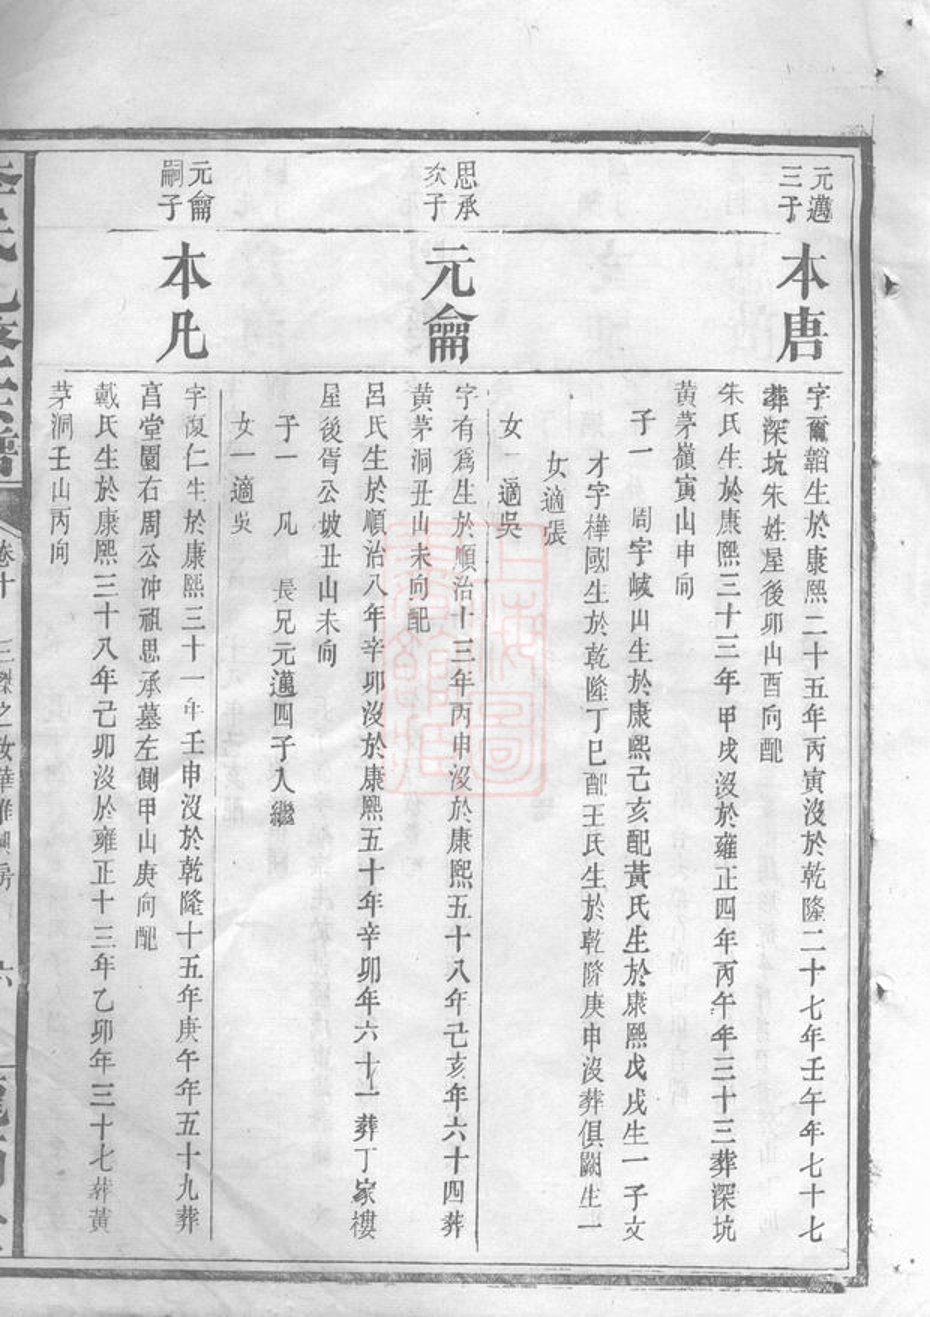 元邁
三子
本唐
字爾韜生於康熙二十五年丙寅沒於乾隆二十七年壬午年七十七
葬深坑朱姓屋後卯山酉向配
朱氏生於康熙三十三年甲戌沒於雍正四年丙午年三十三葬深坑
黄茅嶺寅山申向
子一 周字峸山生於康熙己亥配黃氏生於康熙戊戌生一子文
才字樺國生於乾隆丁巳配王氏生於乾隆庚申沒葬俱闕生一
女適張
女一適吳
思承
次子
元龠
字有爲生於順治十三年丙申沒於康熙五十八年己亥年六十四葬
黃茅洞丑山未向配
呂氏生於順治八年辛卯沒於康熙五十年辛卯年六十一葬丁家樓
屋後胥公坡丑山未向
子一 凡 長兄元邁四子入繼
女一適吳
元龠
嗣子
本凡
字復仁生於康熙三十一年壬申沒於乾隆十五年庚午年五十九葬
菖堂園右周公冲祖思承墓左側甲山庚向配
戴氏生於康熙三十八年己卯沒於雍正十三年乙卯年三十七葬黃
茅洞壬山丙向
卷十
六